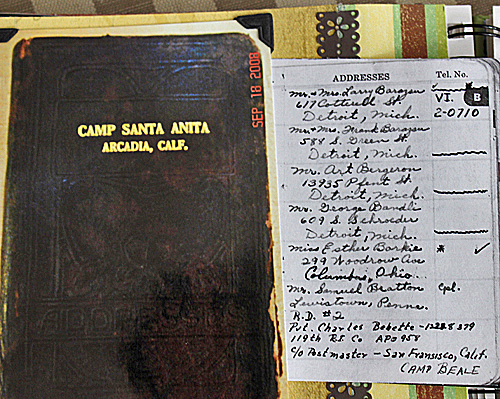 CAMP SANTA ANITA
ARCADIA, CALF.
SEP 18 2008
ADDRESSES
Tel. No.
B
Mr. & Mrs. Larry Baragan
VI.
617 Cottwell St.
2-0710
Detroit, Mich.
Mr. & Mrs. Frank Baragan
584 S. Green St.
Detroit, Mich.
Mr. Art Bergeron
13935 Pfent St
Detroit, Mich.
Mr. George Bandli
609 S. Schroeder
Detroit, Mich.
Miss Esther Barkie
* ✓
299 Woodrow Ave
Columbus, Ohio
Mr. Samuel Bratton
Cpl.
Lewistown, Penna.
R.D. #2
Pvt. Charles Babette -
119th R.S. Co APO 958
c/o Postmaster - San Fransisco, Calif.
CAMP BEALE